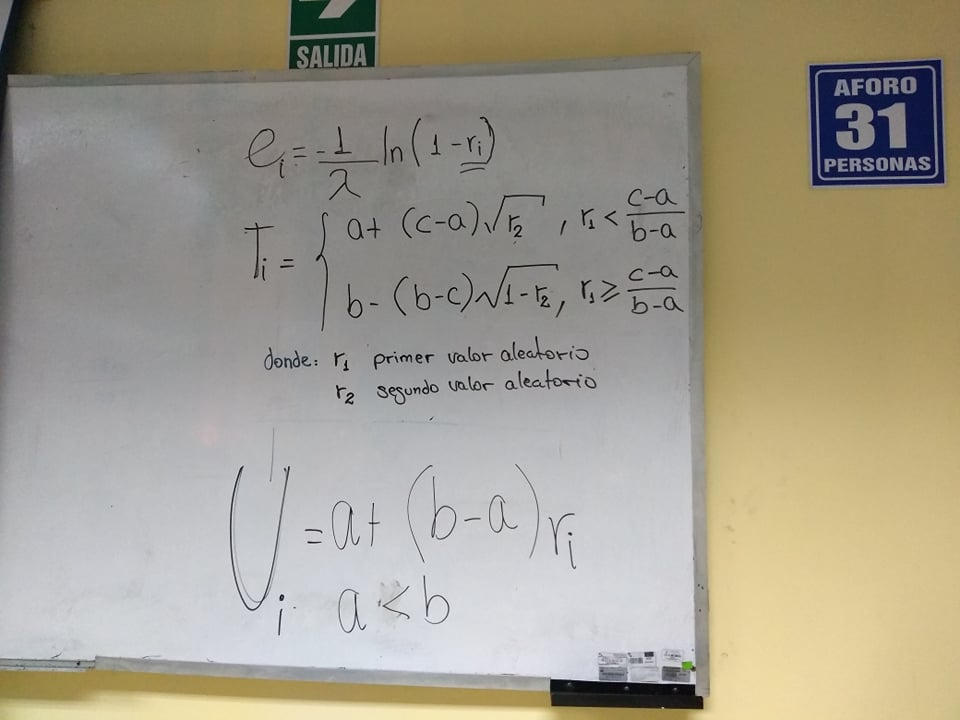 SALIDA
AFORO
31
PERSONAS
e_i = -1/λ ln(1-r_i)
T_i = { a+ (c-a)√r_2 , r_1 < (c-a)/(b-a)
b- (b-c)√(1-r_2) , r_1 ≥ (c-a)/(b-a)
donde: r_1 primer valor aleatorio
r_2 segundo valor aleatorio
U_i = a+ (b-a) r_i
a < b